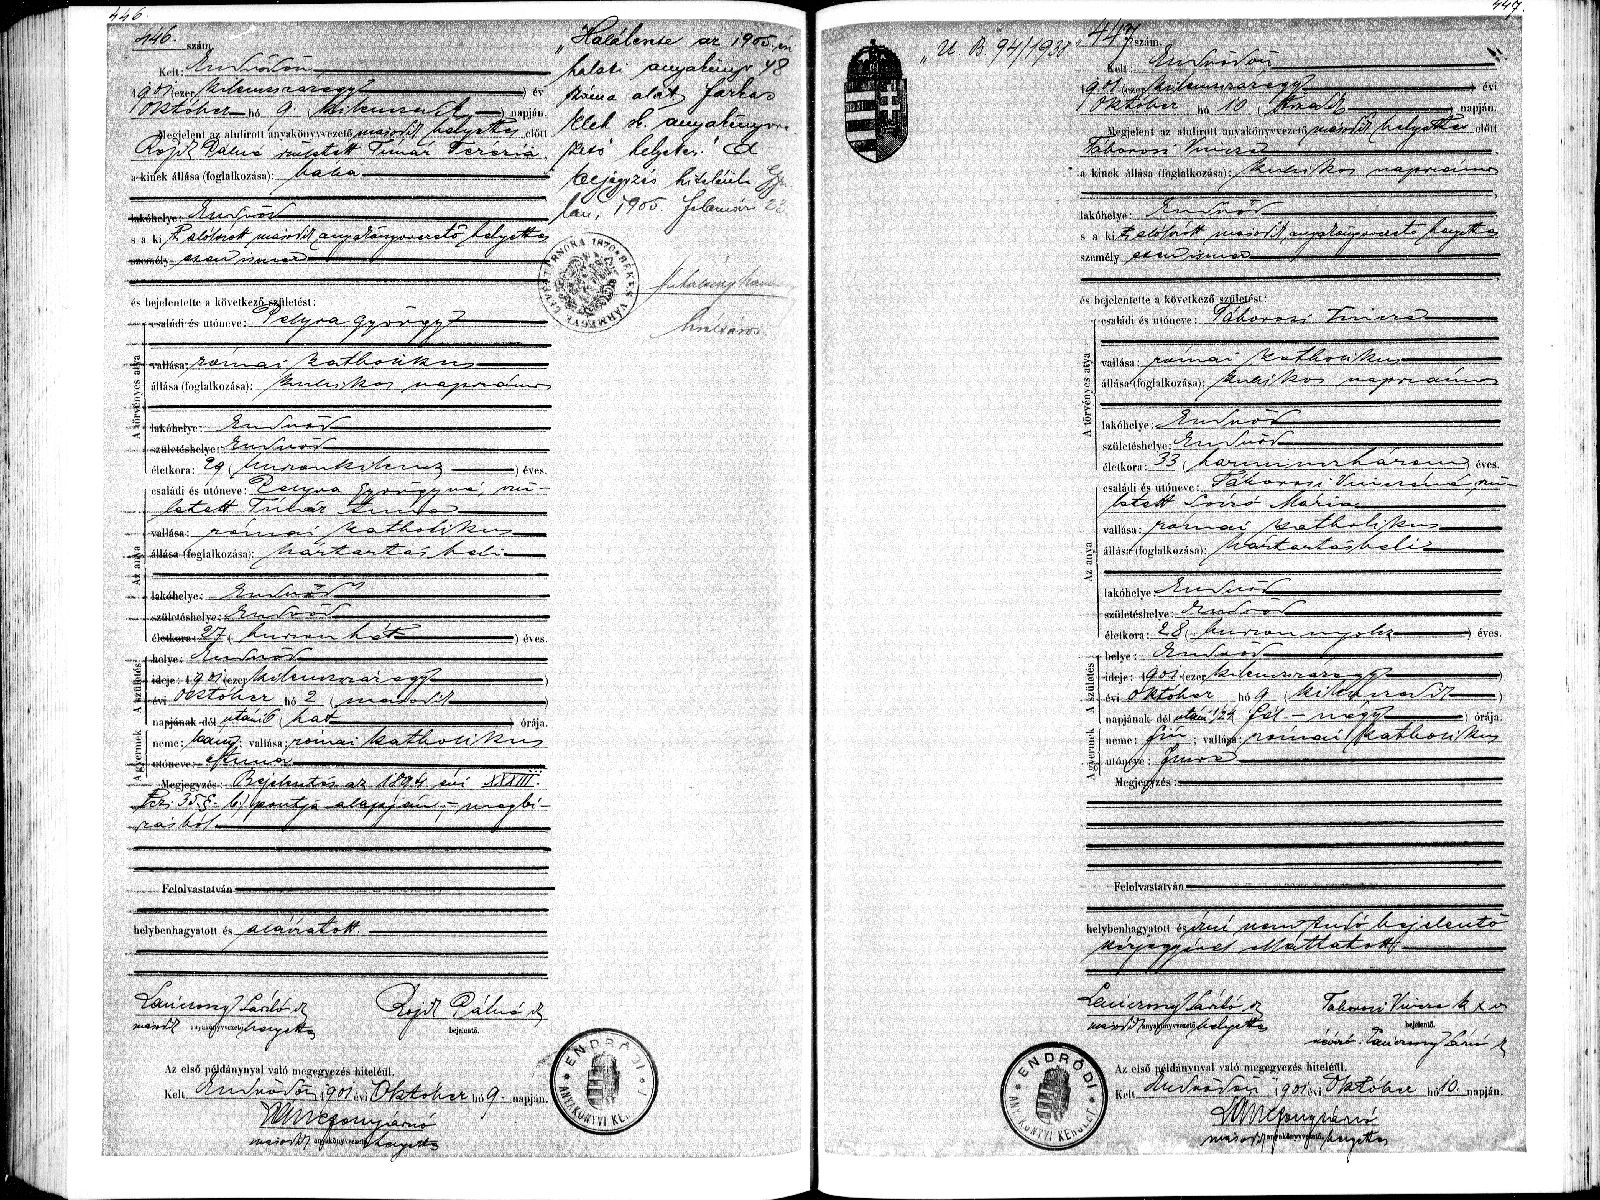 446.
446. szám.
Kelt: Endrődön
1901 (ezer kilencszázegy) évi
Október hó 9 (kilencedik) napján.
Megjelent az alulirott anyakönyvvezető másodh helyettes előtt
Rojik Pálné született Tímár Terézia
a kinek állása (foglalkozása): bába
lakóhelye: Endrőd
s a kit alólirott másodh anyakönyvvezető helyettes
személyesen ismer
és bejelentette a következő születést:
A törvényes atya
családi és utóneve: Pelyva György
vallása: római katholikus
állása (foglalkozása): kubikos napszámos
lakóhelye: Endrőd
születéshelye: Endrőd
életkora: 29 (huszonkilencz) éves.
Az anya
családi és utóneve: Pelyva Györgyné, szü-
letett Tímár Anna
vallása: római katholikus
állása (foglalkozása): háztartásbeli
lakóhelye: Endrőd
születéshelye: Endrőd
életkora: 27 (huszonhét) éves.
A születés
helye: Endrőd
ideje: 1901 (ezer kilencszázegy)
évi október hó 2 (második)
napjának dél utáni 6 (hat) órája.
A gyermek
neme: leány; vallása: római katholikus
utóneve: Anna
Megjegyzés: Bejelentés az 1894 évi XXXIII.
tcz: 35 §. b) pontja alapján - megbí-
zásból.
Felolvastatván
helybenhagyatott és aláíratott.
Rojik Pálné
másodh anyakönyvvezető helyettes
bejelentő.
Az első példánynyal való megegyezés hiteléül.
Kelt Endrődön 1901 évi Október hó 9. napján.
másodh anyakönyvvezető helyettes
ENDRŐDI ANYAKÖNYVI KERÜLET
„Halálesete az 1905. évi
halotti anyakönyv 48
száma alatt. Farkas
anyakönyvve-
zető helyettes." E
bejegyzés hiteléül. Gyu-
lán, 1905 február 22
BÉKÉS VÁRMEGYE LEVÉLTÁRNOKA 1870
levéltáros
447.
„U B 94/1938"
447 szám.
Kelt Endrődön
1901 (ezer kilencszázegy) évi
Október hó 10 (tizedik) napján.
Megjelent az alulirott anyakönyvvezető másodh helyettes előtt
Táborosi Vincze
a kinek állása (foglalkozása): kubikos napszámos
lakóhelye: Endrőd
s a kit alólirott másodh anyakönyvvezető helyettes
személyesen ismer
és bejelentette a következő születést:
A törvényes atya
családi és utóneve: Táborosi Vincze
vallása: római katholikus
állása (foglalkozása): kubikos napszámos
lakóhelye: Endrőd
születéshelye: Endrőd
életkora: 33 (harminczhárom) éves.
Az anya
családi és utóneve: Táborosi Vinczéné, szü-
letett Mária
vallása: római katholikus
állása (foglalkozása): háztartásbeli
lakóhelye: Endrőd
születéshelye: Endrőd
életkora: 28 (huszonnyolcz) éves.
A születés
helye: Endrőd
ideje: 1901 (ezer kilencszázegy)
évi október hó 9 (kilenczedik)
napjának dél utáni 1/24 (fél-négy) órája.
A gyermek
neme: fiú; vallása: római katholikus
utóneve:
Megjegyzés:
Felolvastatván
helybenhagyatott és írni nem tudó bejelentő
kézjegyével elláttatott.
Táborosi Vincze x
másodh anyakönyvvezető helyettes
bejelentő.
Az első példánynyal való megegyezés hiteléül.
Kelt Endrődön 1901 évi Október hó 10. napján.
másodh anyakönyvvezető helyettes
ENDRŐDI ANYAKÖNYVI KERÜLET